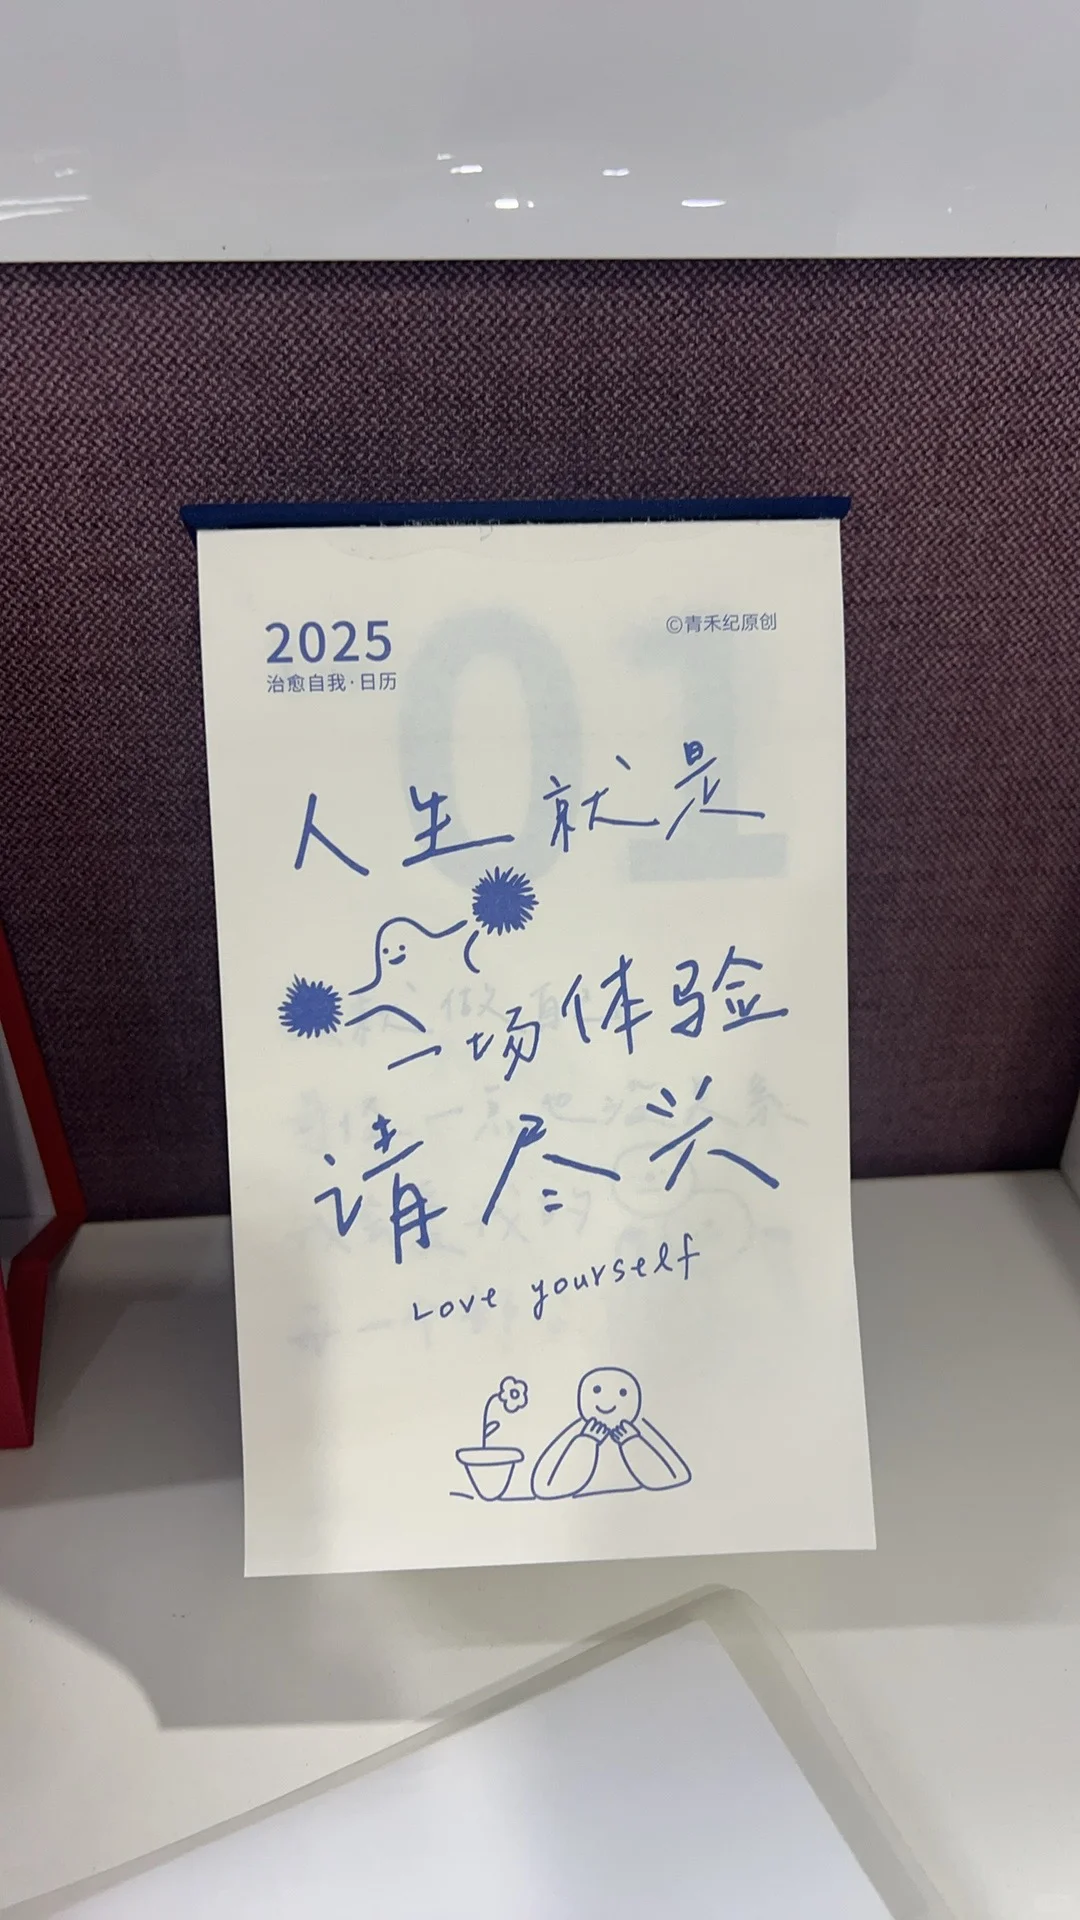 2025
治愈自我·日历
©青禾纪原创
01
人生就是
一场体验
请尽兴
Love yourself